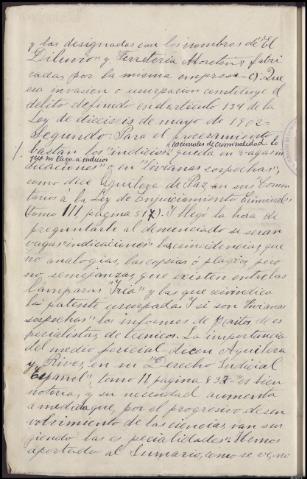 y las designadas con los nombres de "El
Diluvio" y Ferretería Moretón, fabri-
cadas por la misma empresa. Que
esa invasion o usurpacion constituye el
delito definido en el artículo 134 de la
Ley de dieciseis de mayo de 1902=
Segundo= Para el procesamiento
bastan los "indicios racionales de criminalidad lo
que no llega a indicios" queda en vagas in-
dicaciones" o en "livianas sospechas",
como dice Aguilera de Paz en sus Comen-
tarios a la Ley de Enjuiciamiento Criminal
Tomo III página 517). Y llegó la hora de
preguntarle al denunciado si serán
vagas indicaciones" las coincidencias, que
no analogías, las copias o plagios, pero
no semejanzas, que existen entre las
lámparas "Iria" y las que reivindica
la patente usurpada. Y si son "livianas
sospechas" los informes de Peritos, de es-
pecialistas, de técnicos. La importancia
del medio pericial, dicen Aguilera
y Rives, en su "Derecho Judicial
Español", tomo II página 838= es bien
notoria, y su necesidad aumenta
a medida que, por el progresivo desen-
volvimiento de las ciencias van sur-
giendo las especialidades". Hemos
aportado al Sumario, como se ve, no